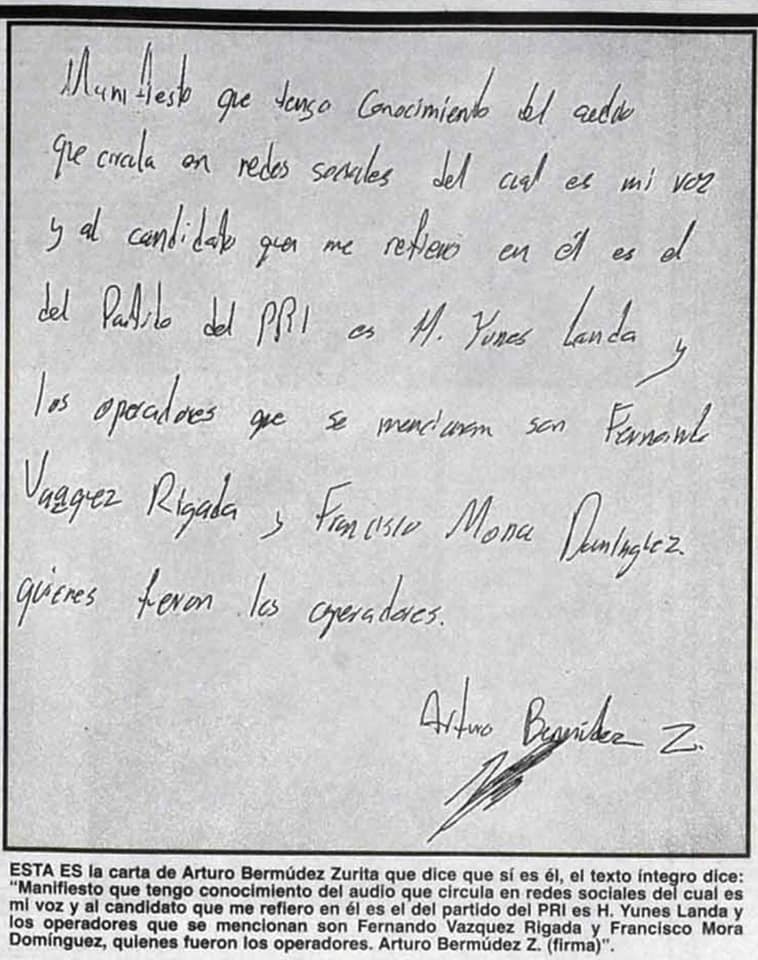 Manifiesto que tengo Conocimiento del audio
que circula en redes sociales del cual es mi voz
y al candidato que me refiero en él es el
del Partido del PRI es H. Yunes Landa y
los operadores que se mencionan son Fernando
Vazquez Rigada y Francisco Mora Domínguez.
quienes fueron los operadores.
Arturo Bermúdez Z.
ESTA ES la carta de Arturo Bermúdez Zurita que dice que sí es él, el texto íntegro dice:
“Manifiesto que tengo conocimiento del audio que circula en redes sociales del cual es
mi voz y al candidato que me refiero en él es el del partido del PRI es H. Yunes Landa y
los operadores que se mencionan son Fernando Vazquez Rigada y Francisco Mora
Domínguez, quienes fueron los operadores. Arturo Bermúdez Z. (firma)”.